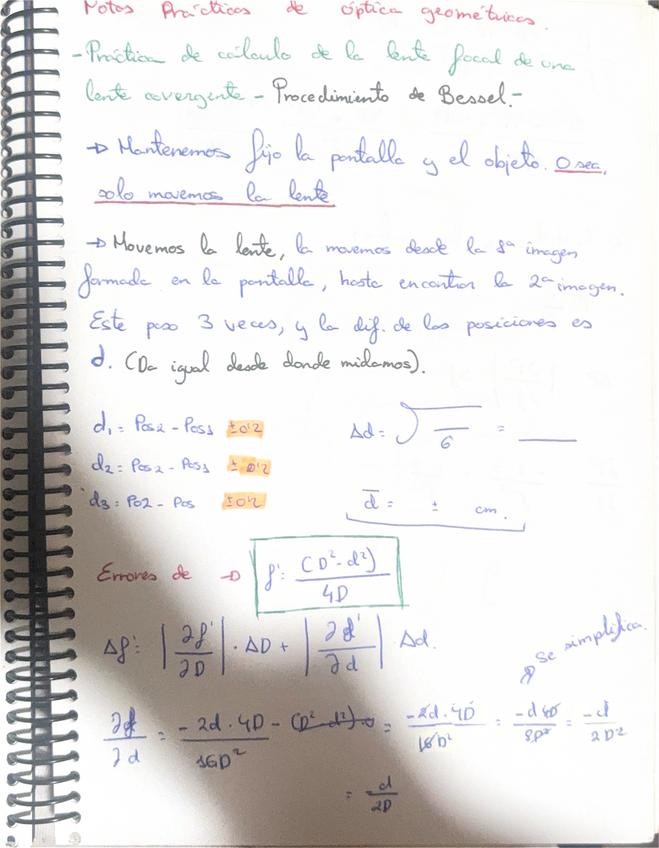 Notas Prácticas de óptica geométricas.
- Práctica de cálculo de la lente focal de una
lente covergente - Procedimiento de Bessel.-
→ Mantenemos fijo la pantalla y el objeto. O sea,
solo movemos la lente
→ Movemos la lente, la movemos desde la 1ª imagen
formada en la pantalla, hasta encontrar la 2ª imagen.
Este paso 3 veces, y la dif. de las posiciones es
d. (Da igual desde donde midamos).
d₁ = Pos2 - Pos1 ±0'2
Δd = √(—/6) = ____
d₂ = Pos2 - Pos1 ±0'2
d₃ = Po2 - Pos ±0'2
d̄ = ± cm.
Errores de → f' = (D² - d²)/4D
Δf' = |∂f'/∂D| · ΔD + |∂f'/∂d| Δd.
se simplifica.
∂f/∂d = (-2d · 4D - (D² - d²) · 0)/16D² = (-2d · 4D)/16D² = (-d 4D)/8D² = -d/2D²
= d/2D